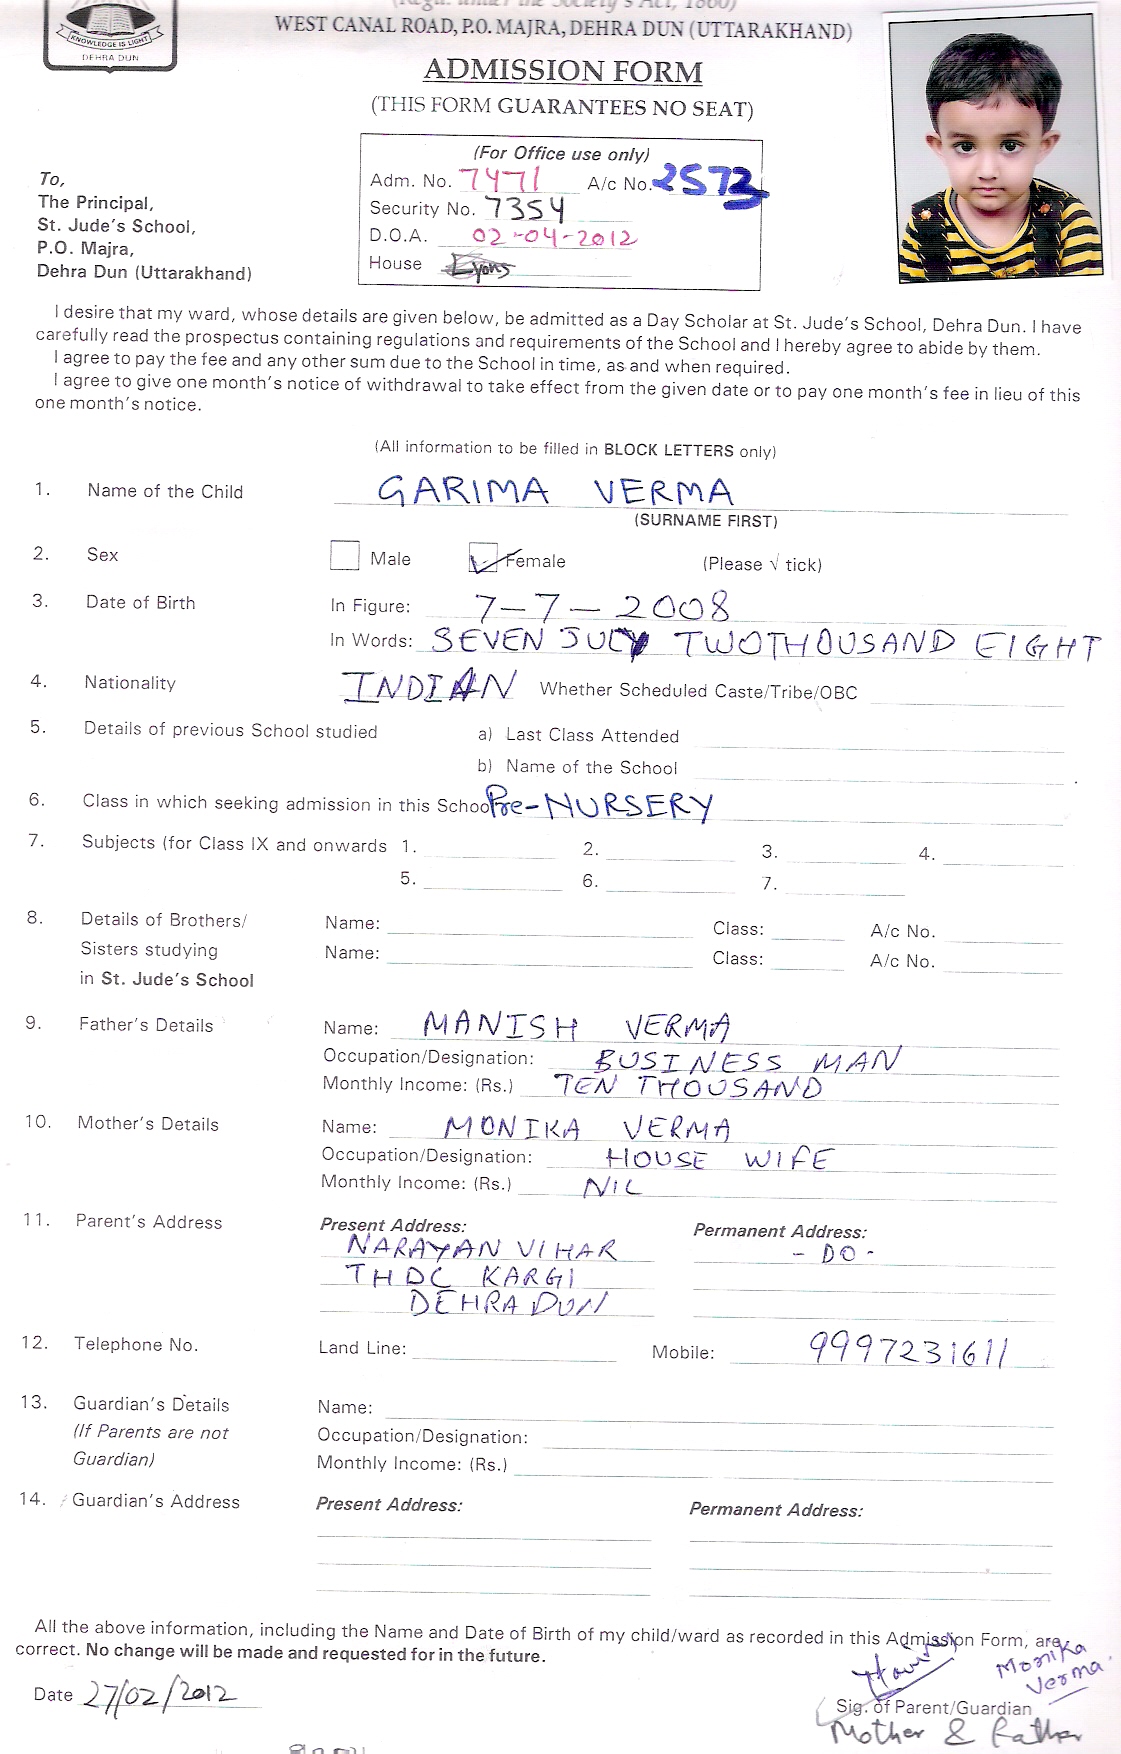 KNOWLEDGE IS LIGHT
DEHRA DUN
(Regd. under the Society's Act, 1860)
WEST CANAL ROAD, P.O. MAJRA, DEHRA DUN (UTTARAKHAND)
ADMISSION FORM
(THIS FORM GUARANTEES NO SEAT)
(For Office use only)
Adm. No. 7471 A/c No. 2573
Security No. 7354
D.O.A. 02-04-2012
House Lyons
To,
The Principal,
St. Jude's School,
P.O. Majra,
Dehra Dun (Uttarakhand)
I desire that my ward, whose details are given below, be admitted as a Day Scholar at St. Jude's School, Dehra Dun. I have
carefully read the prospectus containing regulations and requirements of the School and I hereby agree to abide by them.
I agree to pay the fee and any other sum due to the School in time, as and when required.
I agree to give one month's notice of withdrawal to take effect from the given date or to pay one month's fee in lieu of this
one month's notice.
(All information to be filled in BLOCK LETTERS only)
1. Name of the Child GARIMA VERMA
(SURNAME FIRST)
2. Sex Male Female (Please √ tick)
3. Date of Birth In Figure: 7-7-2008
In Words: SEVEN JULY TWOTHOUSAND EIGHT
4. Nationality INDIAN Whether Scheduled Caste/Tribe/OBC
5. Details of previous School studied a) Last Class Attended
b) Name of the School
6. Class in which seeking admission in this School Pre-NURSERY
7. Subjects (for Class IX and onwards 1. 2. 3. 4.
5. 6. 7.
8. Details of Brothers/ Name: Class: A/c No.
Sisters studying Name: Class: A/c No.
in St. Jude's School
9. Father's Details Name: MANISH VERMA
Occupation/Designation: BUSINESS MAN
Monthly Income: (Rs.) TEN THOUSAND
10. Mother's Details Name: MONIKA VERMA
Occupation/Designation: HOUSE WIFE
Monthly Income: (Rs.) NIL
11. Parent's Address Present Address: Permanent Address:
NARAYAN VIHAR - DO -
THDC KARGI
DEHRA DUN
12. Telephone No. Land Line: Mobile: 9997231611
13. Guardian's Details Name:
(If Parents are not Occupation/Designation:
Guardian) Monthly Income: (Rs.)
14. Guardian's Address Present Address: Permanent Address:
All the above information, including the Name and Date of Birth of my child/ward as recorded in this Admission Form, are
correct. No change will be made and requested for in the future.
Monika
Verma
Date 27/02/2012
Sig. of Parent/Guardian
Mother & Father